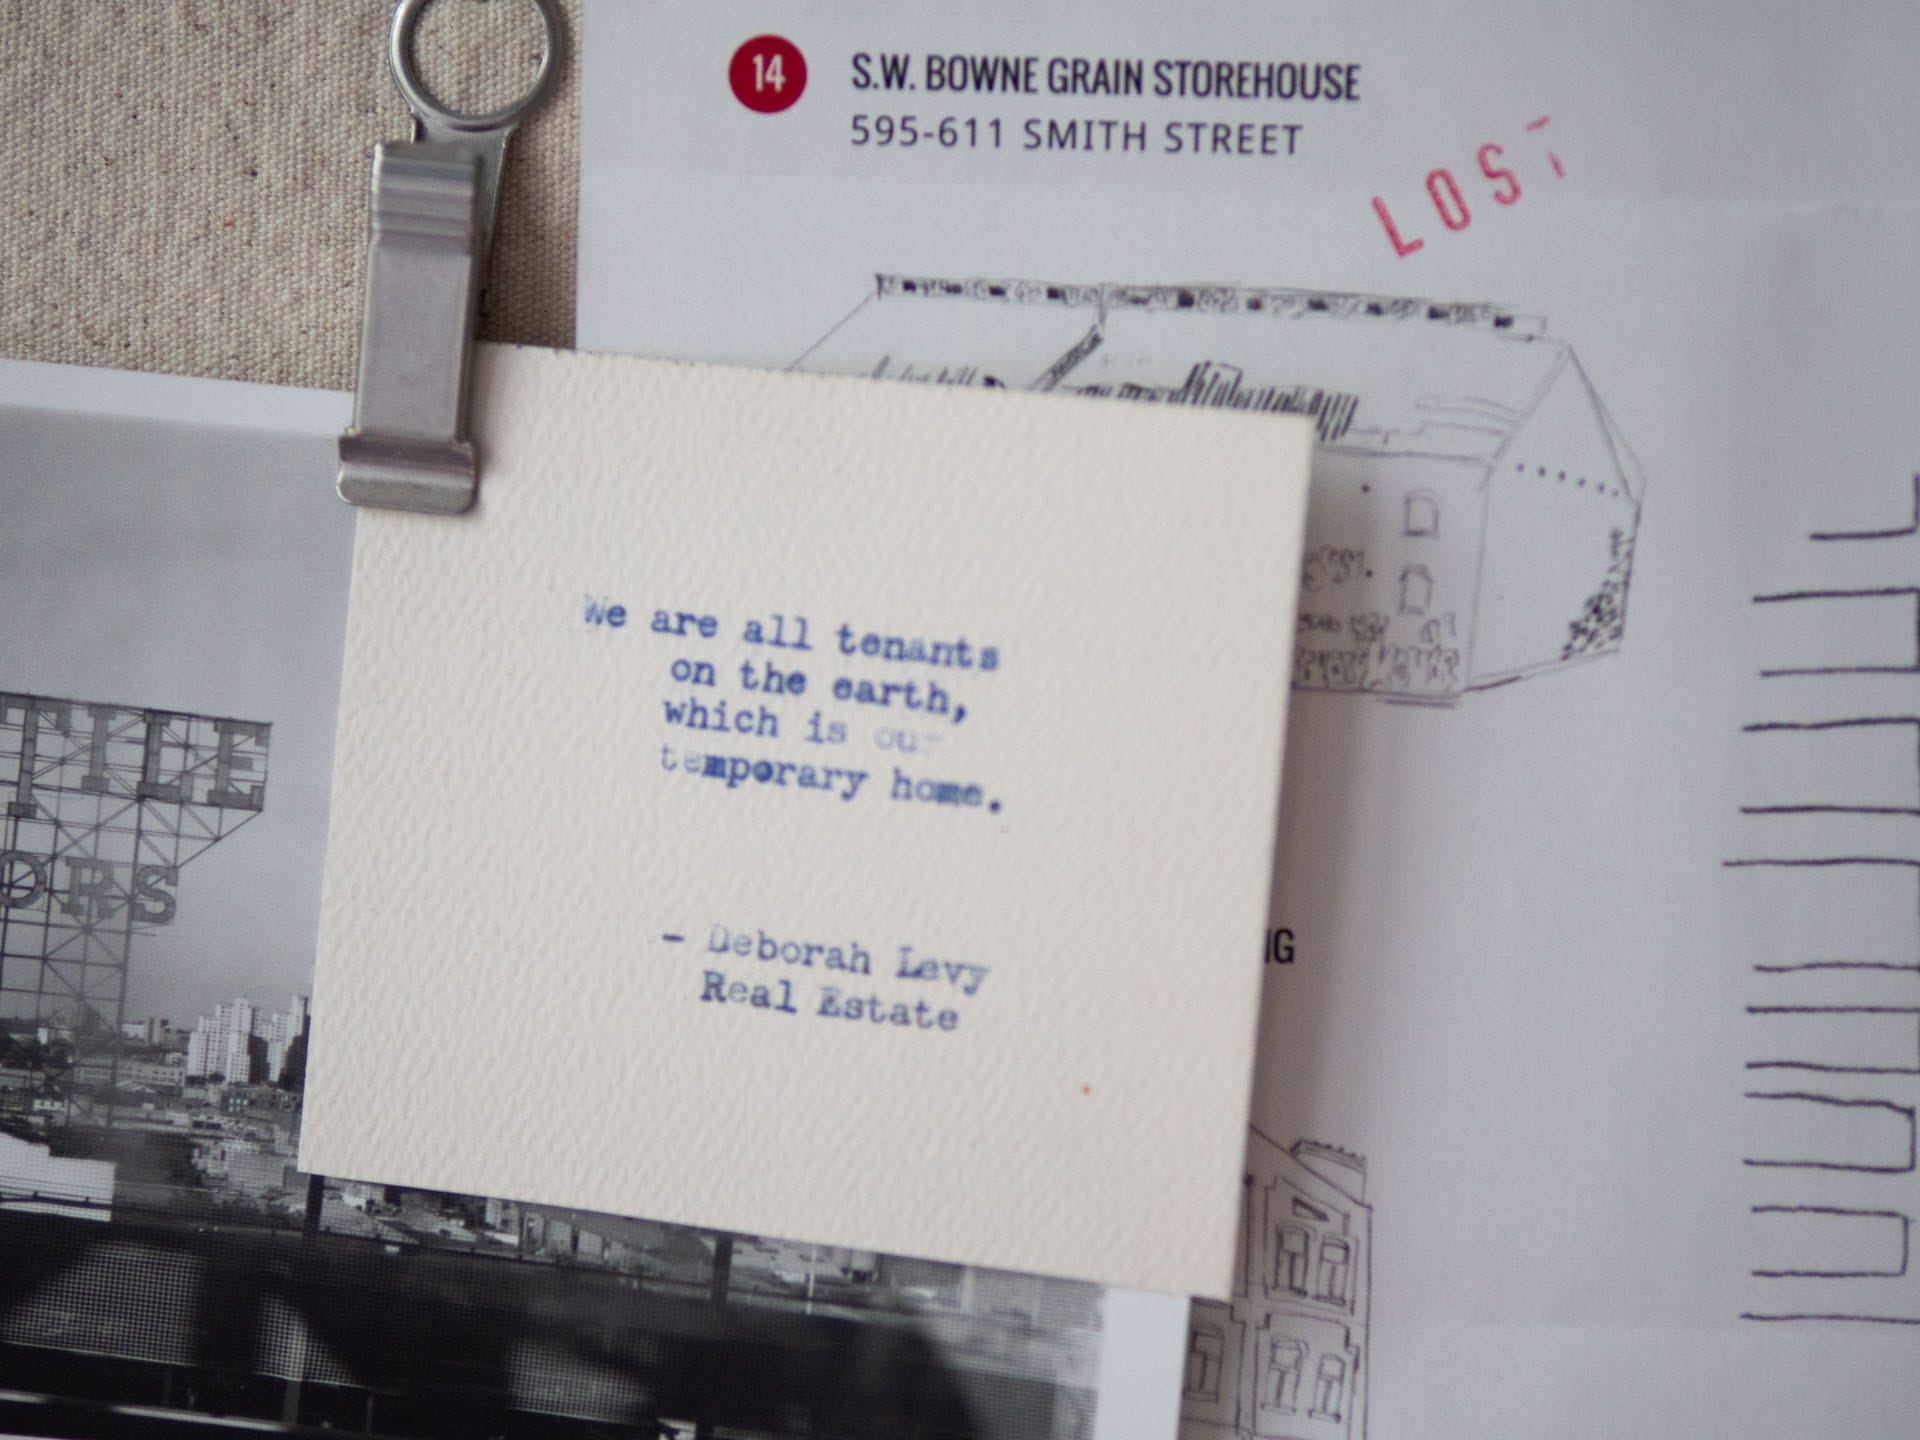 14
S.W. BOWNE GRAIN STOREHOUSE
595-611 SMITH STREET
LOST
We are all tenants
on the earth,
which is our
temporary home.
- Deborah Levy
Real Estate
TILE
ORS
NG